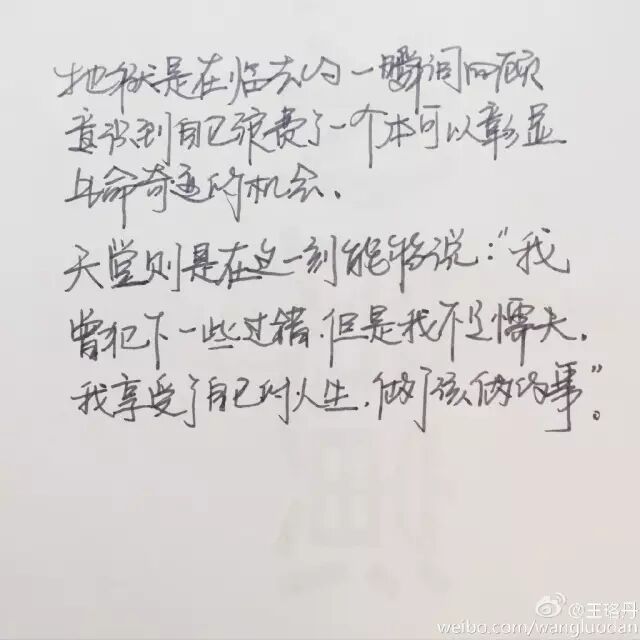 地狱是在临去的一瞬间回顾
意识到自己浪费了一个本可以彰显
生命奇迹的机会、
天堂则是在这一刻能够说：“我
曾犯下一些过错，但是我不是懦夫，
我享受了自己的人生，做了该做的事”。
@王珞丹
weibo.com/wangluodan